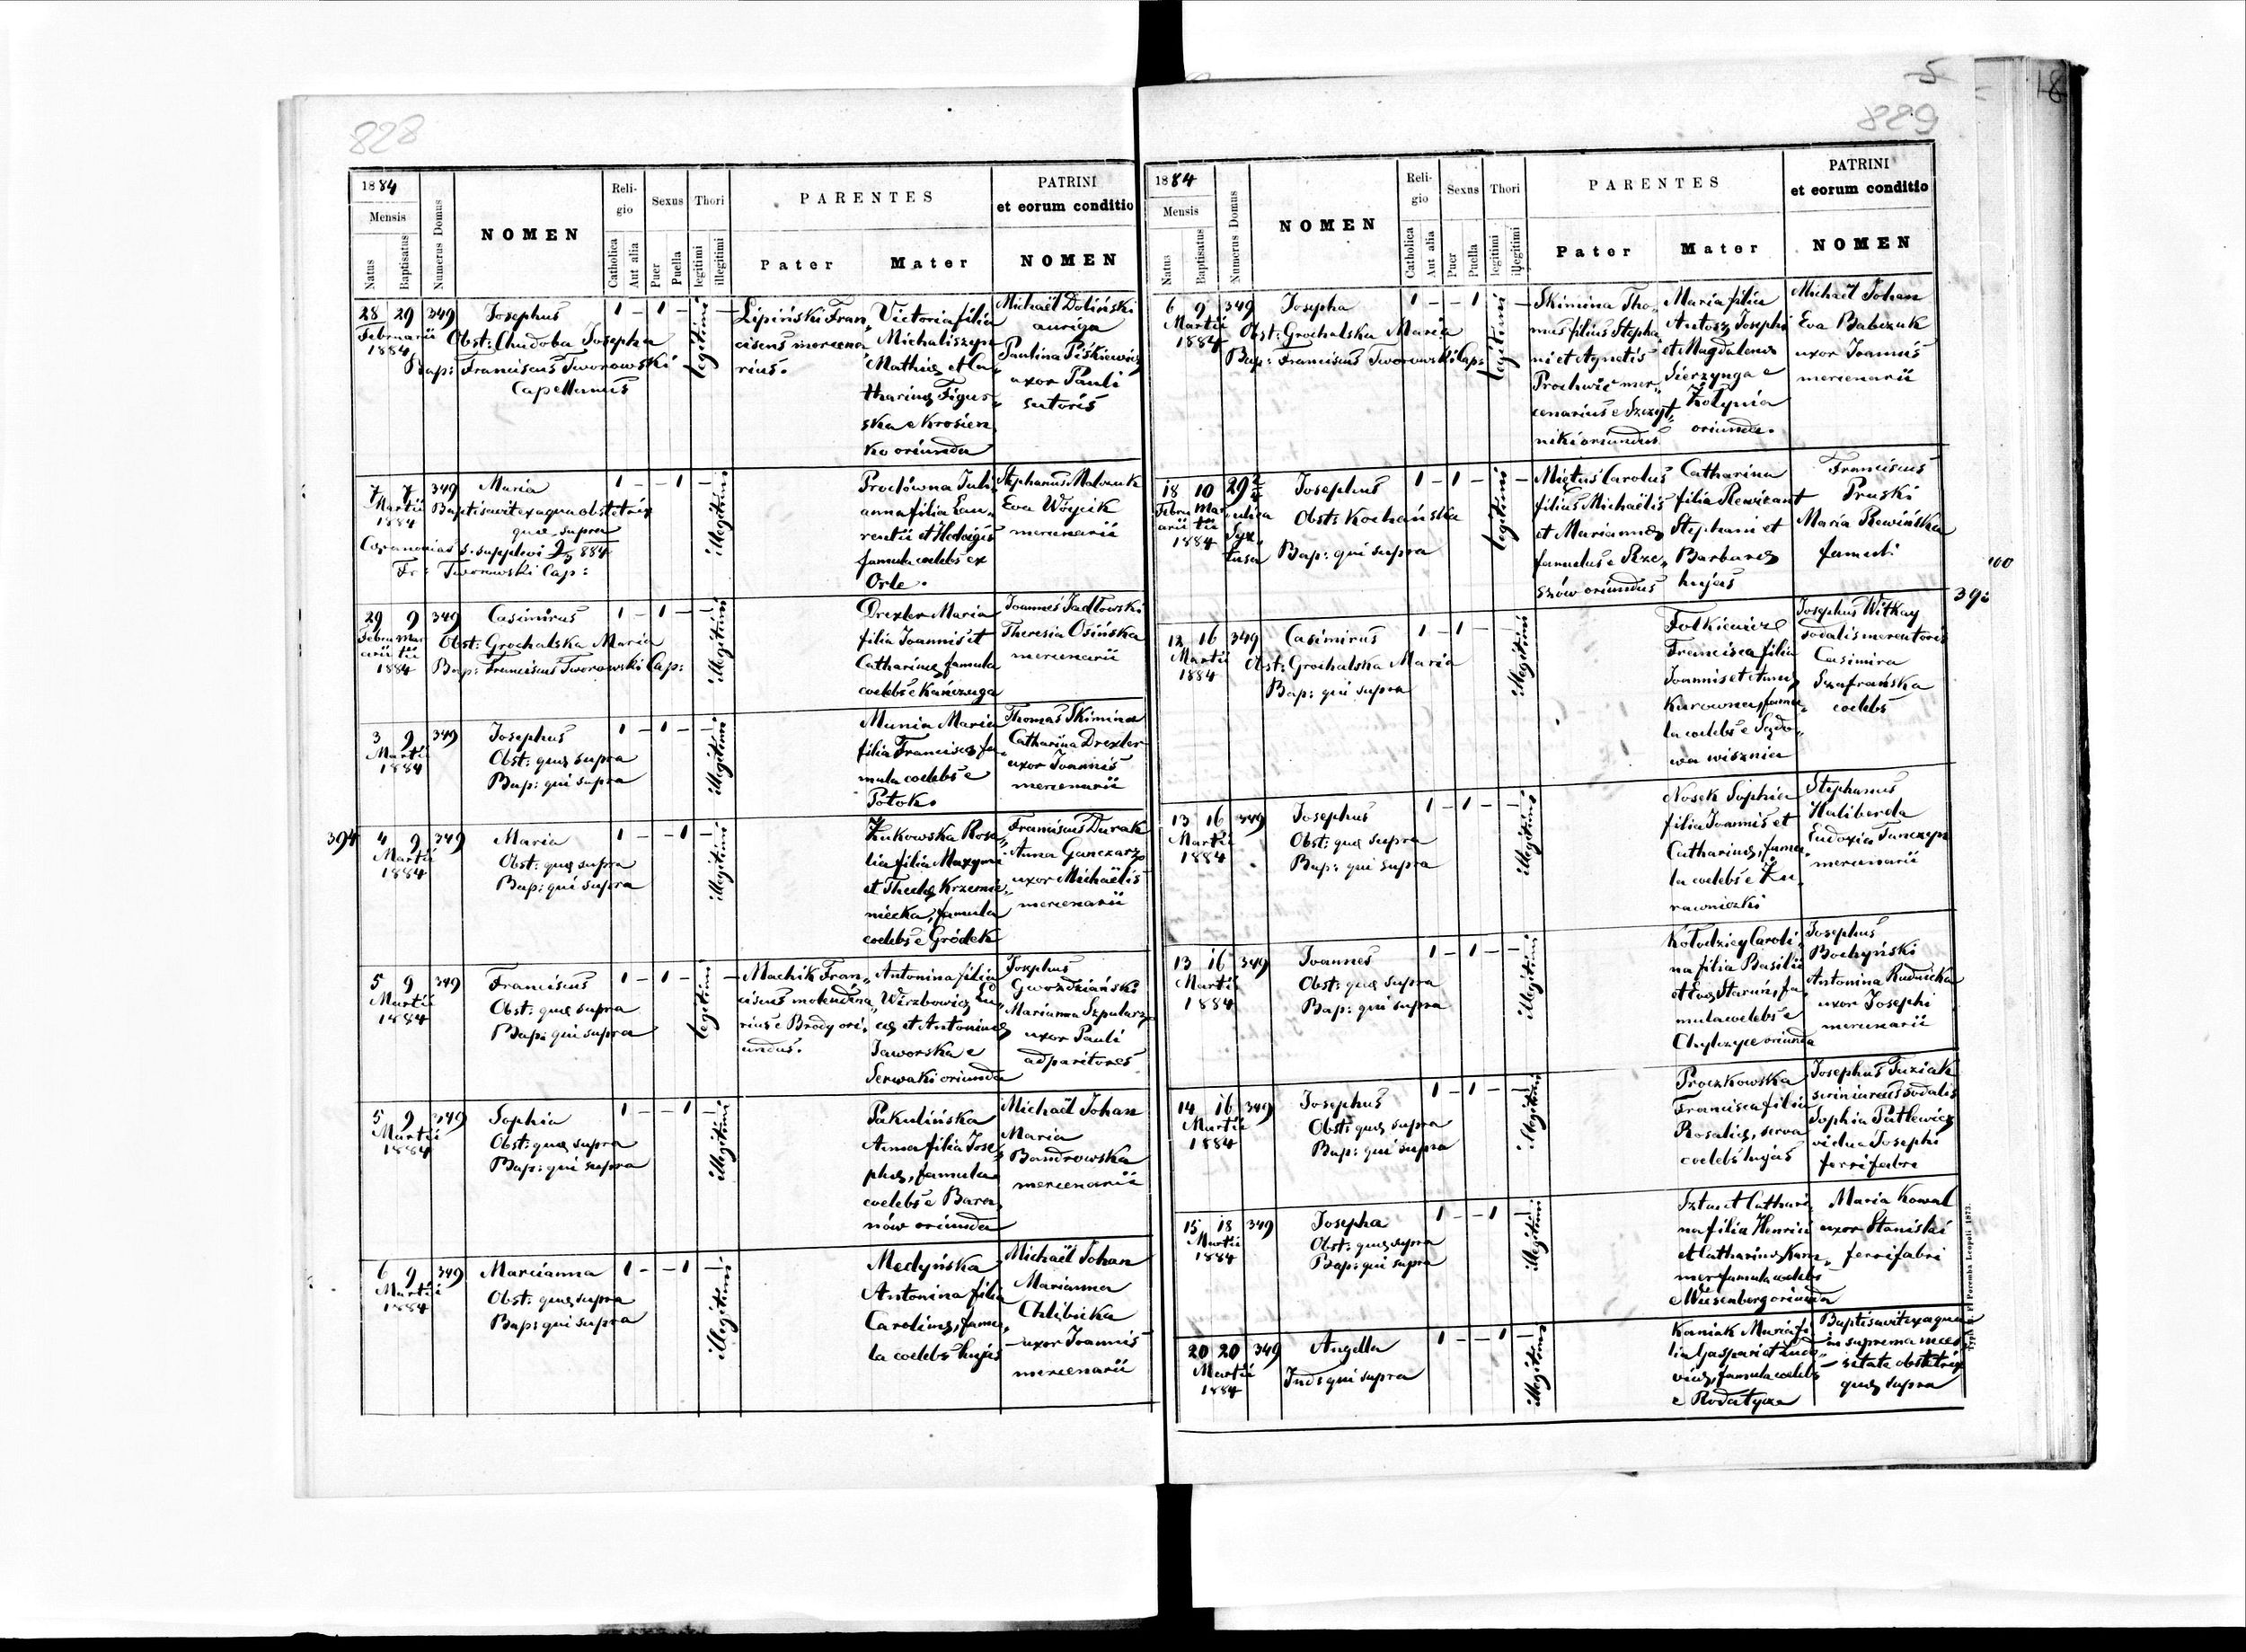 828
1884
Mensis
Natus
Baptisatus
Numerus Domus
NOMEN
Religio
Catholica
Aut alia
Sexus
Puer
Puella
Thori
legitimi
illegitimi
PARENTES
Pater
Mater
PATRINI
et eorum conditio
NOMEN
28 29 349 Josephus 1 – 1 – legitimi –
Februarii
1884
Obst: Chudoba Josepha
Bap: Franciscus Tworowski
Capellanus
Lipiński Fran„
ciscus mercena„
rius.
Victoria filia
Michaliszyn
Mathiæ et Ca„
tharinæ Figur„
ska e Krosien„
ko oriunda
Michaël Doliński
auriga
Paulina Piśkiewicz
uxor Pauli
sutoris
7 7 349 Maria 1 – – 1 – illegitimi
Martii
1884
Baptisavit ex aqua obstetrix
quæ supra
Fr: Tworowski Cap:
Juli„
anna filia Lau„
rentii et Hedvigis
famula coelebs ex
Orle.
Stephanus
Eva Wójcik
mercenarii
29 9 349 Casimirus 1 – 1 – – illegitimi
Februarii Martii
1884
Obst: Grochalska Maria
Bap: Franciscus Tworowski Cap:
Drexler Maria
filia Joannis et
Catharinæ famula
coelebs e Kańczuga
Joannes Jadłowski
Theresia Osińska
mercenarii
3 9 349 Josephus 1 – 1 – – illegitimi
Martii
1884
Obst: quæ supra
Bap: qui supra
Munia Maria
filia Franciscæ fa„
mula coelebs e
Potok.
Thomas Skimina
Catharina Drexler
uxor Joannis
mercenarii
394
4 9 349 Maria 1 – – 1 – illegitimi
Martii
1884
Obst: quæ supra
Bap: qui supra
Żukowska Rosa„
lia filia Maxymi
et Theclæ Krzemie„
niecka, famula
coelebs e Gródek
Franciscus Durak
Anna Ganczarz
uxor Michaëlis
mercenarii
5 9 349 Franciscus 1 – 1 – legitimi –
Martii
1884
Obst: quæ supra
Bap: qui supra
Machik Fran„
ciscus molendina„
rius e Brody ori„
undus.
Antonina filia
Wirzbowicz Lu„
cæ et Antoninæ
Jaworska e
Serwaki oriunda
Josephus
Gwoździański
Marianna Szpularz
uxor Pauli
adparitores
5 9 349 Sophia 1 – – 1 – illegitimi
Martii
1884
Obst: quæ supra
Bap: qui supra
Pakulińska
Anna filia Jose„
phæ, famula
coelebs e Bara„
nów oriunda
Michaël Johan
Maria
Bandrowska
mercenarii
6 9 349 Marcianna 1 – – 1 – illegitimi
Martii
1884
Obst: quæ supra
Bap: qui supra
Medyńska
Antonina filia
Carolinæ, famu„
la coelebs hujas
Michaël Johan
Marianna
Chlibicka
uxor Joannis
mercenarii
5
18
829
1884
Mensis
Natus
Baptisatus
Numerus Domus
NOMEN
Religio
Catholica
Aut alia
Sexus
Puer
Puella
Thori
legitimi
illegitimi
PARENTES
Pater
Mater
PATRINI
et eorum conditio
NOMEN
6 9 349 Josepha 1 – – 1 legitimi –
Martii
1884
Obst: Grochalska Maria
Bap: Franciscus Tworowski Cap:
Skimina Tho„
mas filius Stepha„
ni et Agnetis
Prochwic mer„
cenarius e Szczyt„
niki oriundus
Maria filia
Antosz Josephi
et Magdalenæ
Sierzynga e
Żołynia
oriunda.
Michaël Johan
Eva Babczuk
uxor Joannis
mercenarii
18 10 29 2/4 Josephus 1 – 1 – legitimi –
Februarii Martii
1884
ulica
Syx„
tusca
Obst: Kochańska
Bap: qui supra
Miętus Carolus
filius Michaëlis
et Mariannæ
famulus e Rze„
szów oriundus
Catharina
filia Rewizant
Stephani et
Barbaræ
hujas
Franciscus
Pruski
Maria Rewińska
famuli
100
395
12 16 349 Casimirus 1 – 1 – – illegitimi
Martii
1884
Obst: Grochalska Maria
Bap: qui supra
Folkiewicz
Francisca filia
Joannis et Annæ
Kurowna, famu„
la coelebs e Sądo„
wa wisznia
Josephus Witkay
sodalis mercatoris
Casimira
Szafrańska
coelebs
13 16 349 Josephus 1 – 1 – – illegitimi
Martii
1884
Obst: quæ supra
Bap: qui supra
Nosek Sophia
filia Joannis et
Catharinæ, famu„
la coelebs e Żu„
rawniczki
Stephanus
Haliberda
Eudoxia Tunczyn
mercenarii
13 16 349 Joannes 1 – 1 – – illegitimi
Martii
1884
Obst: quæ supra
Bap: qui supra
Kołodziey Caroli„
na filia Basilii
et Evæ Staruń, fa„
mula coelebs e
Chylczyce oriunda
Josephus
Bochyński
Antonina Rudnicka
uxor Josephi
mercenarii
14 16 349 Josephus 1 – 1 – – illegitimi
Martii
1884
Obst: quæ supra
Bap: qui supra
Proczkowska
Francisca filia
Rosaliæ, serva
coelebs hujas
Josephus Tuziak
scriniareus sodalis
Sophia Patlewicz
vidua Josephi
ferrifabri
15 18 349 Josepha 1 – – 1 – illegitimi
Martii
1884
Obst: quæ supra
Bap: qui supra
Cathari„
na filia Henrici
et Catharinæ Kam„
mer famula coelebs
e Wiesenberg oriunda
Maria Kowal
uxor Stanislai
ferrifabri
20 20 349 Angella 1 – – 1 – illegitimi
Martii
1884
Inds qui supra
Koniak Maria fi„
lia Gaspari et Ludo„
vicæ, famula coelebs
e Rodatycze
Baptisavit ex aqua
in suprema neces„
sitate obstetrix
quæ supra
Poremba Leopoli 1873.